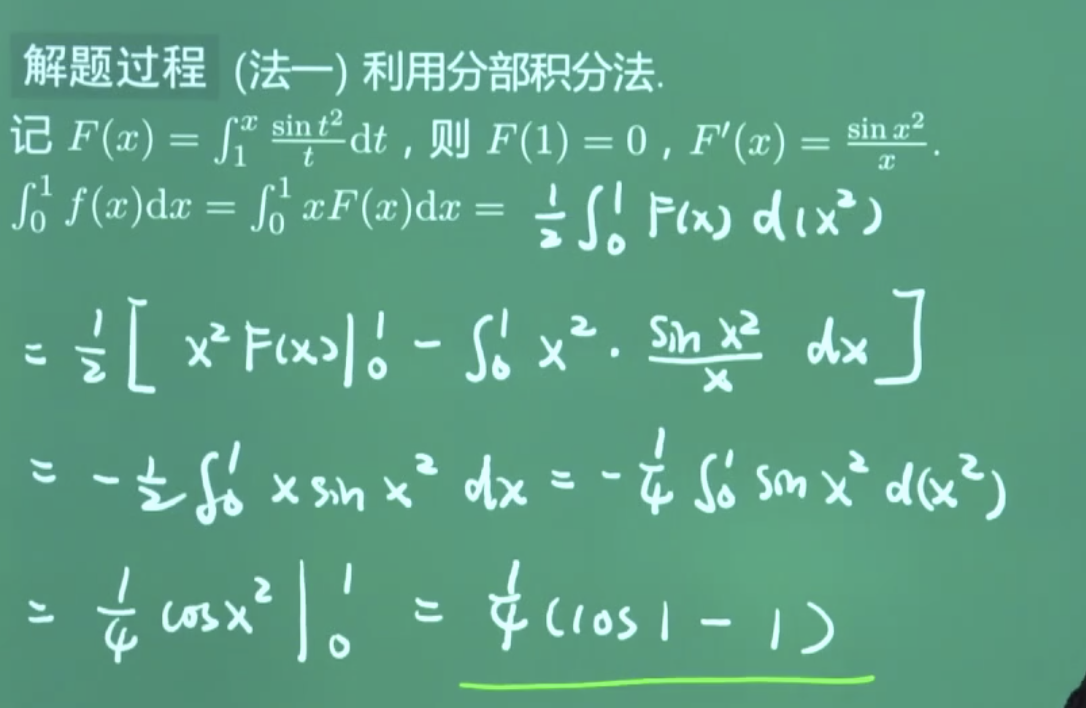 解题过程 (法一) 利用分部积分法.
记 F(x) = ∫₁ˣ \frac{sin t²}{t} dt , 则 F(1) = 0 , F′(x) = \frac{sin x²}{x} .
∫₀¹ f(x)dx = ∫₀¹ xF(x)dx = \frac{1}{2} ∫₀¹ F(x) d(x²)
= \frac{1}{2} [ x² F(x)|₀¹ - ∫₀¹ x² · \frac{sin x²}{x} dx ]
= - \frac{1}{2} ∫₀¹ x sin x² dx = - \frac{1}{4} ∫₀¹ sin x² d(x²)
= \frac{1}{4} cos x² |₀¹ = \frac{1}{4} (cos 1 - 1)